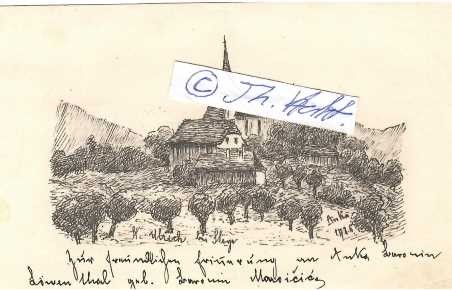 © Th. Vogt.
St. Ulrich bei Steyr
Anka
1925
Zur freundlichen Erinnerung an Anka Baronin
Löwenthal geb. Baronin Maričić